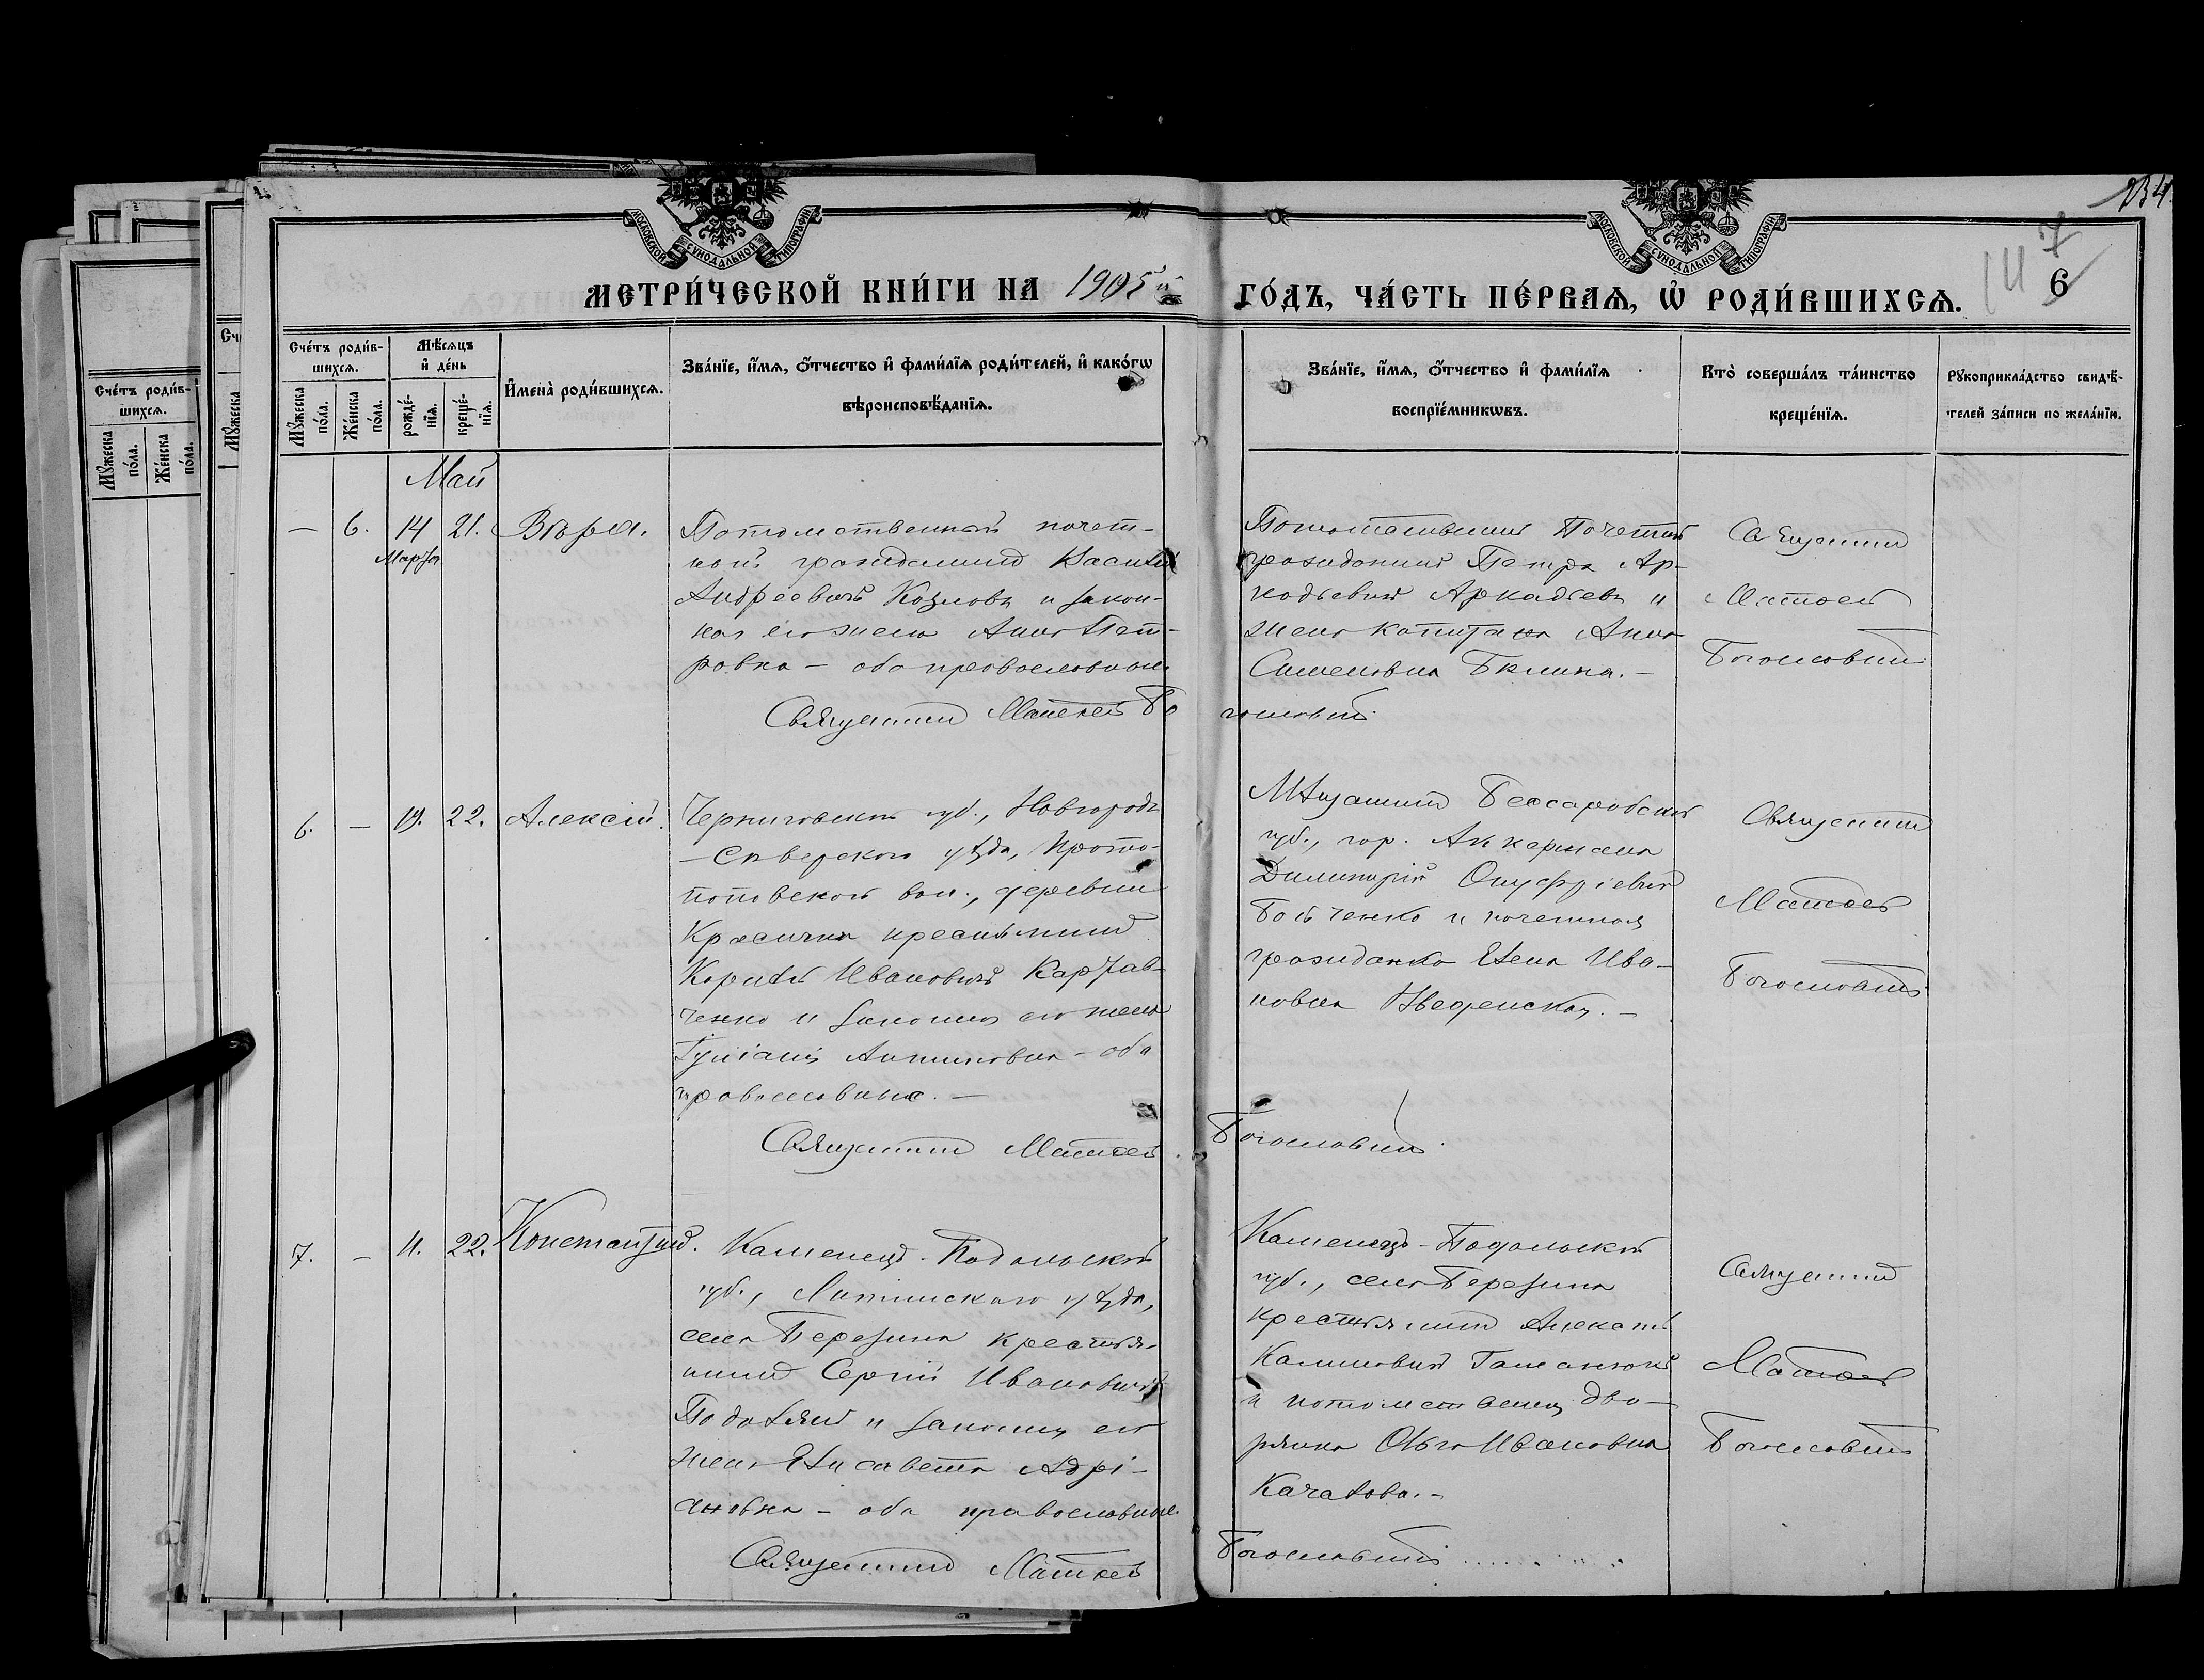 234
МОСКОВСКОЙ СУНОДАЛЬНОЙ ТИПОГРАФІИ
МОСКОВСКОЙ СУНОДАЛЬНОЙ ТИПОГРАФІИ
7
6
МЕТРИ́ЧЕСКОЙ КНИ́ГИ НА 1905й ГО́ДЪ, ЧА́СТЬ ПЕ́РВАѦ, Ѡ҆ РОДИ́ВШИХСѦ.
Сче́тъ роди́в-
шихсѧ.
Мꙋ́жеска
по́ла.
Же́нска
по́ла.
Мѣ́сѧцъ
и҆ де́нь
рожде́-
нїѧ.
креще́-
нїѧ.
И҆мена̀ роди́вшихсѧ.
Зва́нїе, и҆́мѧ, ѻ҆́тчество и҆ фами́лїѧ роди́телей, и҆ како́гѡ
вѣроисповѣ́данїѧ.
Зва́нїе, и҆́мѧ, ѻ҆́тчество и҆ фами́лїѧ
воспрїе́мникѡвъ.
Кто̀ соверша́лъ та́инство
креще́нїѧ.
Рꙋкоприкла́дство свидѣ́-
телей за́писи по жела́нїю.
Сче́тъ роди́в-
шихсѧ.
Мꙋ́жеска
по́ла.
Же́нска
по́ла.
Май
— 6. 14 21. Вѣра.
Марта
Потомственный почет-
ный гражданинъ Василій
Андреевичъ Козловъ и закон-
ная его жена Анна Пет-
ровна — оба православные.
Потомственный Почетный
гражданинъ Петръ Ар-
кадьевичъ Аркадьевъ и
жена капитана Анна
Семеновна
Священникъ
Матѳей
Богословскій
Священникъ Матѳей Бо
гословскій.
6. — 19. 22. Алексій.
Черниговской губ., Новгородъ
-Сѣверского уѣзда, Прото-
поповской вол., деревни
крестьянинъ
Корнилій Ивановичъ Харлав-
ченко и законная его жена
Іуліанія Антиповна — оба
православные. —
Мѣщанинъ Бессарабской
губ., гор. Аккермана
Димитрій Онуфріевичъ
Бойченко и почетная
гражданка Елена Ива-
новна Введенская. —
Священникъ
Матѳей
Богословскій
Священникъ Матѳей
Богословскій.
7. — 11. 22. Константинъ.
Каменецъ-Подольской
губ., Литинскаго уѣзда,
села Березина крестья-
нинъ Сергій Ивановичъ
и законная его
жена Елисавета Адрі-
ановна — оба православные.
Каменецъ-Подольской
губ., села Березина
крестьянинъ Алексѣй
и потомственная дво-
рянка Ольга Ивановна
Качалова. —
Священникъ
Матѳей
Богословскій
Священникъ Матѳей
Богословскій